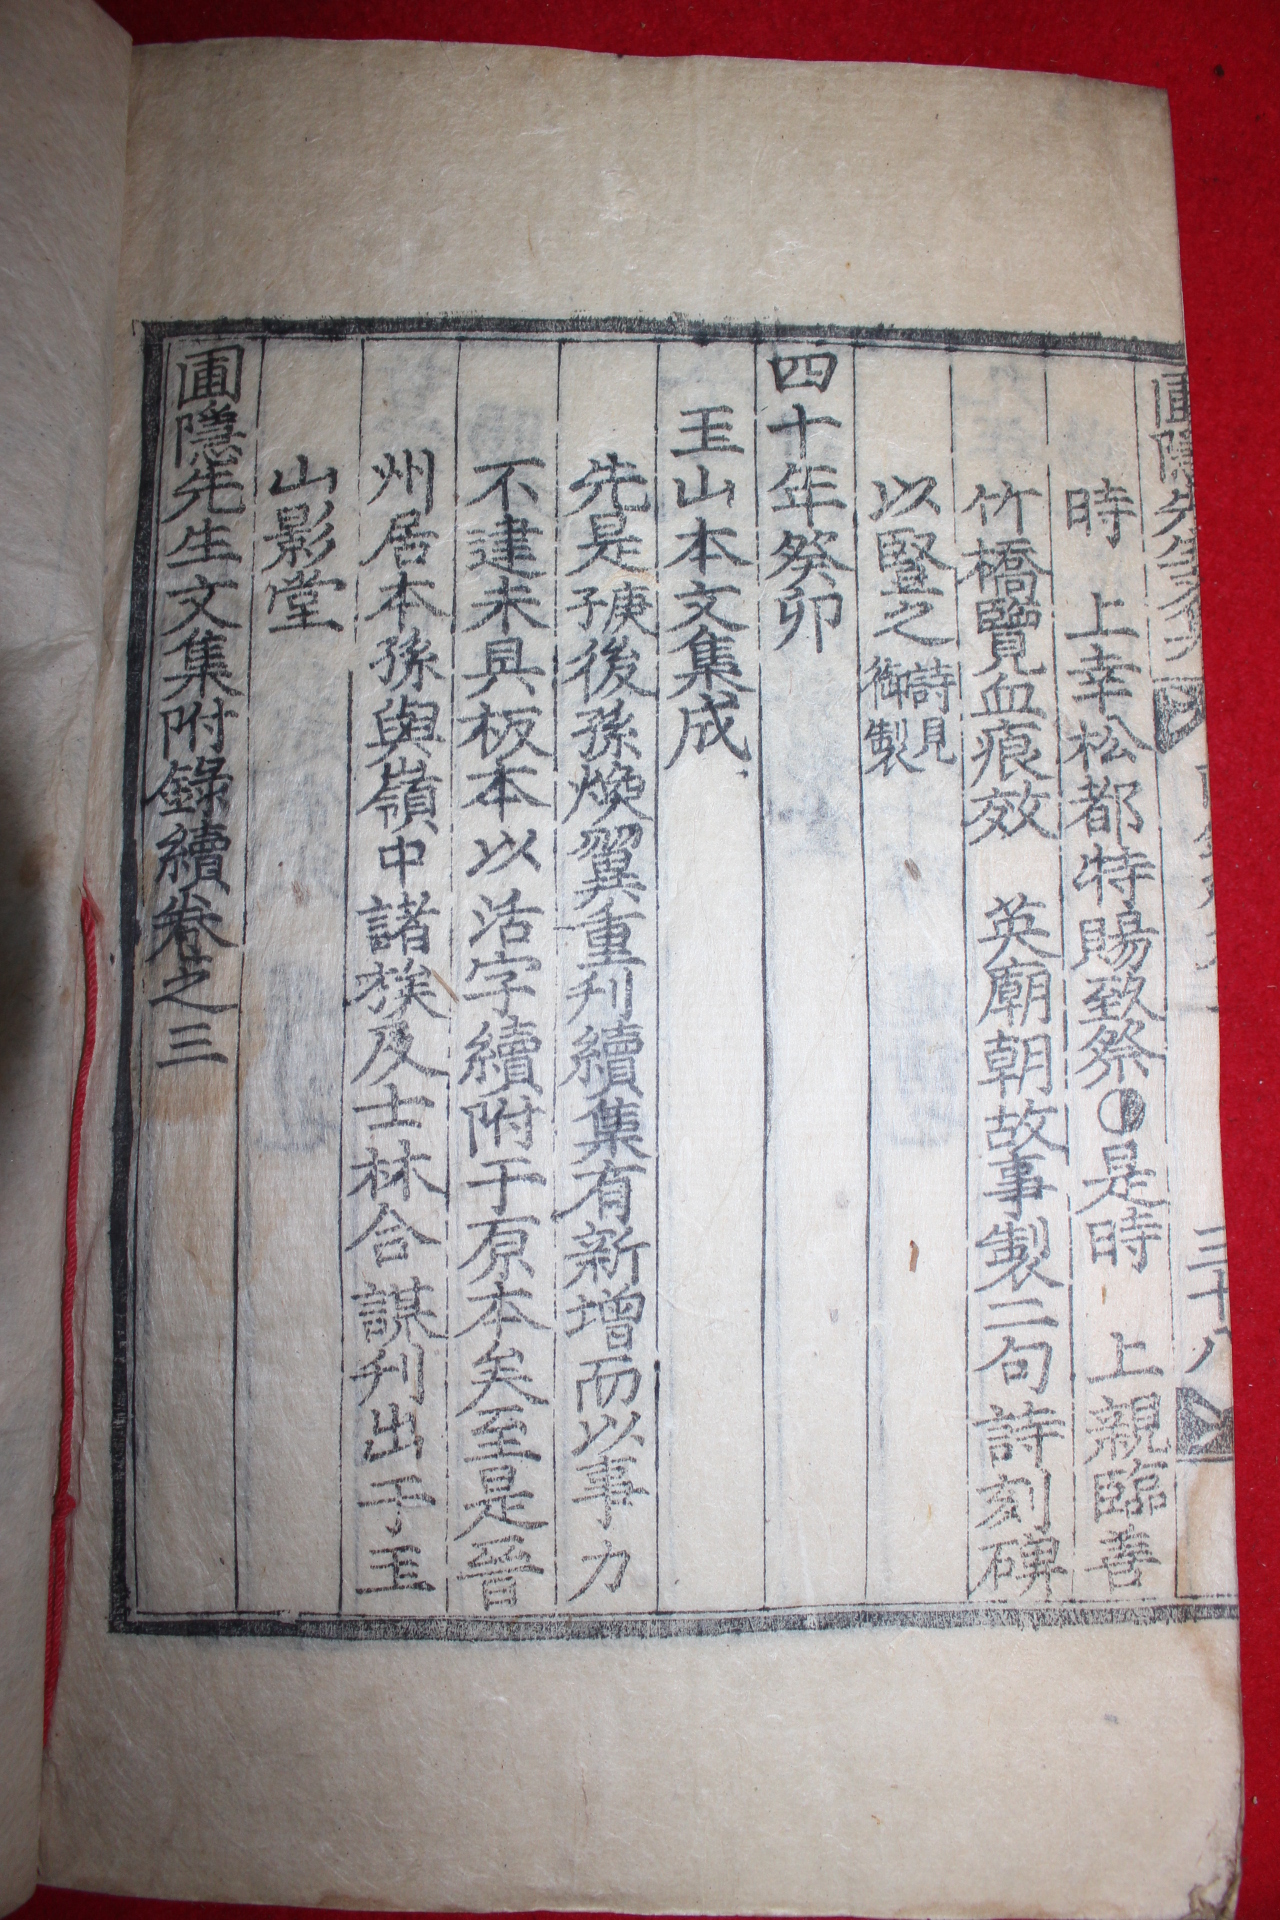 圃隱先生文集
三十八
時　上幸松都特賜致祭○是時　上親臨善
竹橋覽血痕效　英廟朝故事製二句詩刻碑
以豎之詩見御製
四十年癸卯
玉山本文集成
先是庚子後孫煥翼重刊續集有新增而以事力
不逮未具板本以活字續附于原本矣至是晉
州居本孫與嶺中諸族及士林合謀刊出于玉
山影堂
圃隱先生文集附錄續卷之三